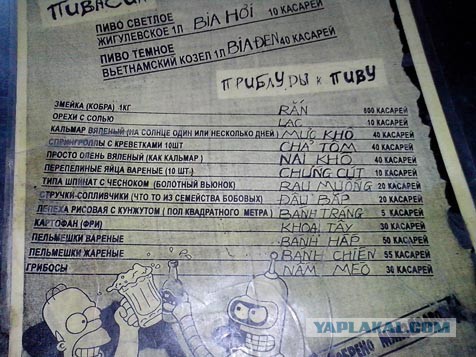 ПИВАСИК
ПИВО СВЕТЛОЕ
ЖИГУЛЕВСКОЕ 1Л BIA HƠI 10 КАСАРЕЙ
ПИВО ТЕМНОЕ
ВЬЕТНАМСКИЙ КОЗЕЛ 1Л BIA ĐEN 40 КАСАРЕЙ
ПРИБЛУДЫ К ПИВУ
ЗМЕЙКА (КОБРА) 1КГ RẮN 800 КАСАРЕЙ
ОРЕХИ С СОЛЬЮ LẠC 10 КАСАРЕЙ
КАЛЬМАР ВЯЛЕНЫЙ (НА СОЛНЦЕ ОДИН ИЛИ НЕСКОЛЬКО ДНЕЙ) MỰC KHÔ 40 КАСАРЕЙ
СПРИНГРОЛЛЫ С КРЕВЕТКАМИ 10ШТ CHẢ TÔM 40 КАСАРЕЙ
ПРОСТО ОЛЕНЬ ВЯЛЕНЫЙ (КАК КАЛЬМАР) NAI KHÔ 40 КАСАРЕЙ
ПЕРЕПЕЛИНЫЕ ЯЙЦА ВАРЕНЫЕ (10 ШТ.) CHỨNG CÚT 10 КАСАРЕЙ
ТИПА ШПИНАТ С ЧЕСНОКОМ (БОЛОТНЫЙ ВЬЮНОК) RAU MUỐNG 20 КАСАРЕЙ
СТРУЧКИ-СОПЛИВЧИКИ (ЧТО ТО ИЗ СЕМЕЙСТВА БОБОВЫХ) ĐẬU BẮP 20 КАСАРЕЙ
ЛЕПЕХА РИСОВАЯ С КУНЖУТОМ (ПОЛ КВАДРАТНОГО МЕТРА) BÁNH TRÁNG 5 КАСАРЕЙ
КАРТОФАН (ФРИ) KHOAI TÂY 30 КАСАРЕЙ
ПЕЛЬМЕШКИ ВАРЕНЫЕ BÁNH HẤP 50 КАСАРЕЙ
ПЕЛЬМЕШКИ ЖАРЕНЫЕ BÁNH CHIÊN 55 КАСАРЕЙ
ГРИБОСЫ NẤM MÈO 30 КАСАРЕЙ
YAPLAKAL.COM